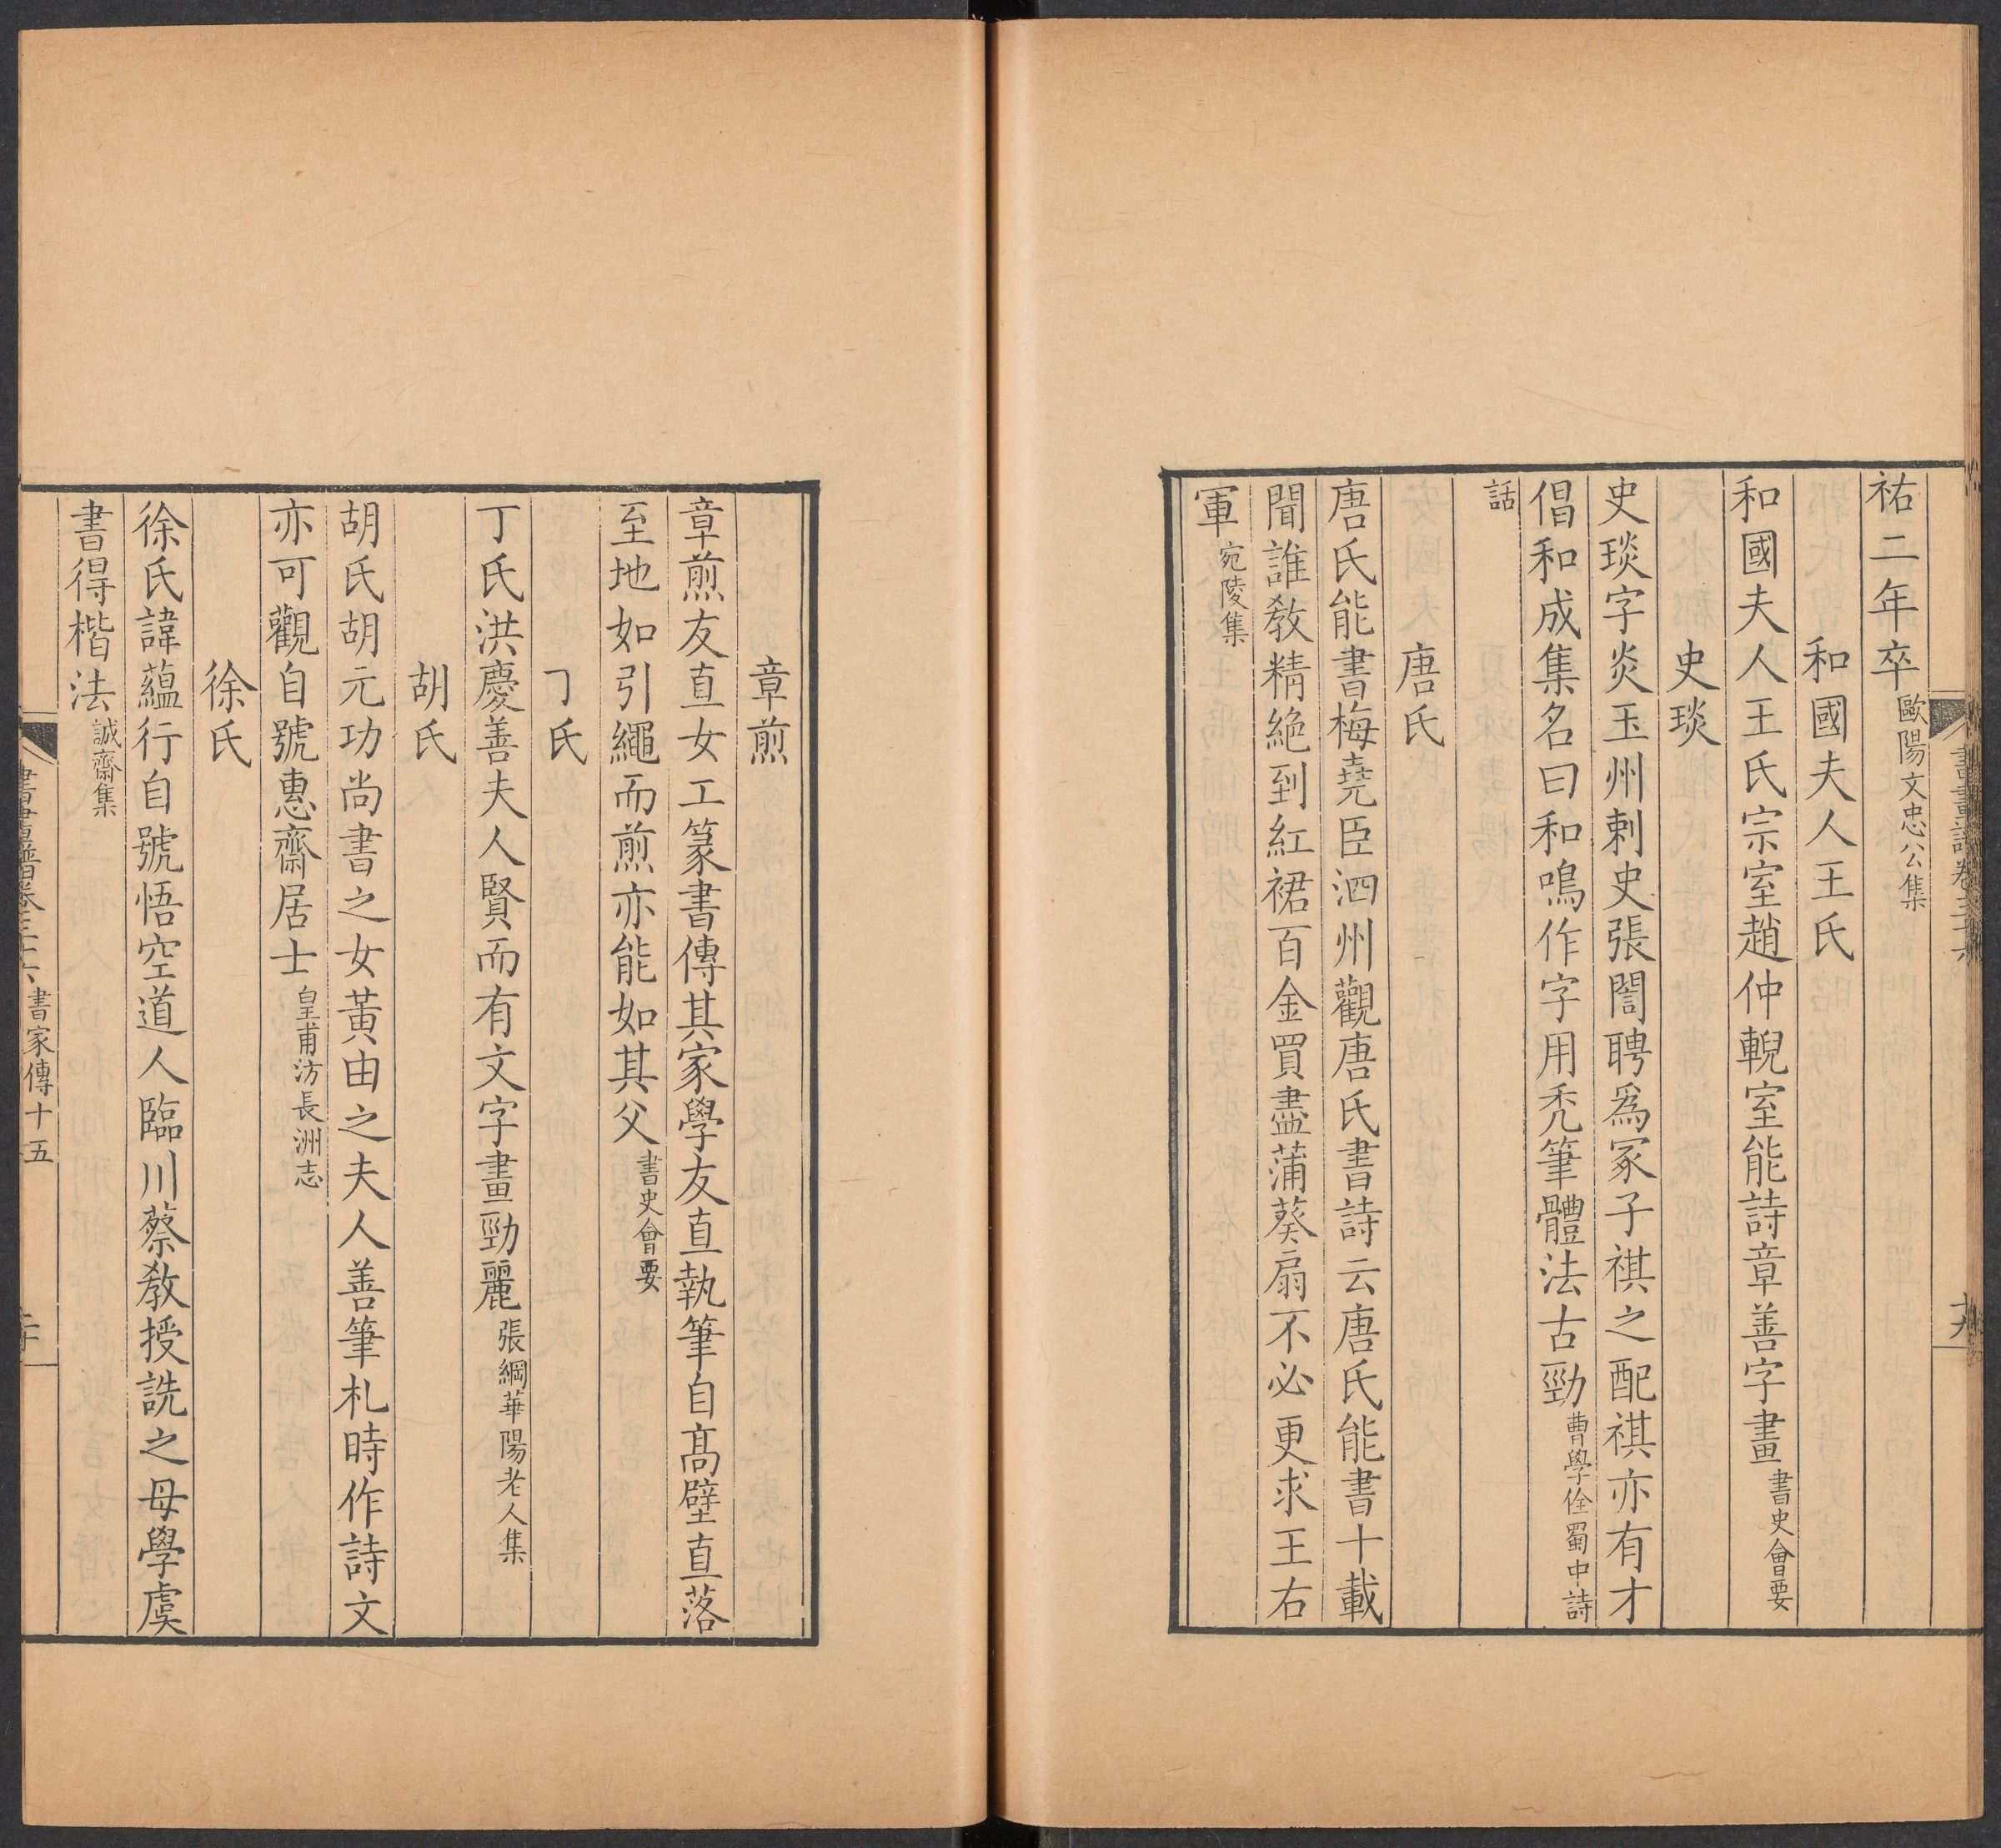 祐二年卒歐陽文忠公集
和國夫人王氏
和國夫人王氏宗室趙仲輗室能詩章善字畫書史會要
史琰
史琰字炎玉州刺史張誾聘爲冢子祺之配祺亦有才
倡和成集名曰和鳴作字用禿筆體法古勁曹學佺蜀中詩
話
唐氏
唐氏能書梅堯臣泗州觀唐氏書詩云唐氏能書十載
聞誰敎精絶到紅裙百金買盡蒲葵扇不必更求王右
軍宛陵集
章煎
章煎友直女工篆書傳其家學友直執筆自高壁直落
至地如引繩而煎亦能如其父書史會要
丁氏
丁氏洪慶善夫人賢而有文字畫勁麗張綱華陽老人集
胡氏
胡氏胡元功尚書之女黃由之夫人善筆札時作詩文
亦可觀自號惠齋居士皇甫汸長洲志
徐氏
徐氏諱蘊行自號悟空道人臨川蔡敎授詵之母學虞
書得楷法誠齋集
書畫譜卷三十六 書家傳十五 二十